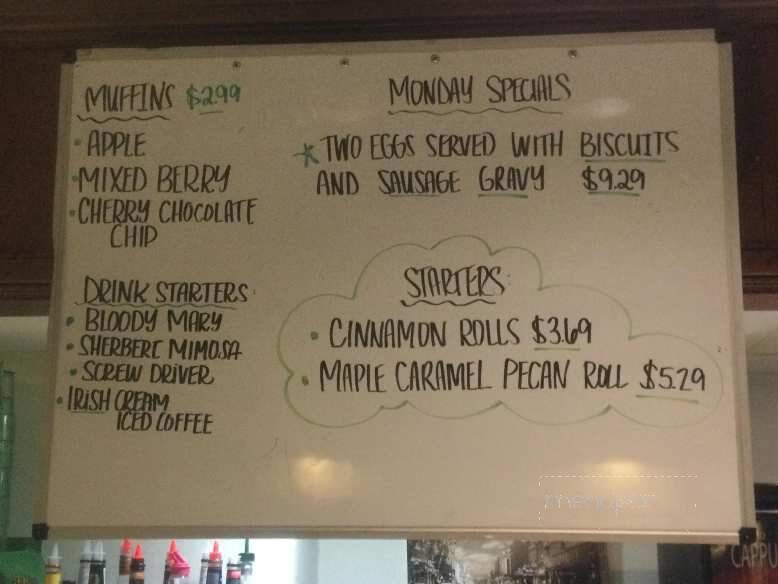 MUFFINS $2.99
• APPLE
• MIXED BERRY
• CHERRY CHOCOLATE
CHIP
DRINK STARTERS:
• BLOODY MARY
• SHERBERT MIMOSA
• SCREW DRIVER
• IRISH CREAM
ICED COFFEE
MONDAY SPECIALS
* TWO EGGS SERVED WITH BISCUITS
AND SAUSAGE GRAVY $9.29
STARTERS:
• CINNAMON ROLLS $3.69
• MAPLE CARAMEL PECAN ROLL $5.29
CAPPU